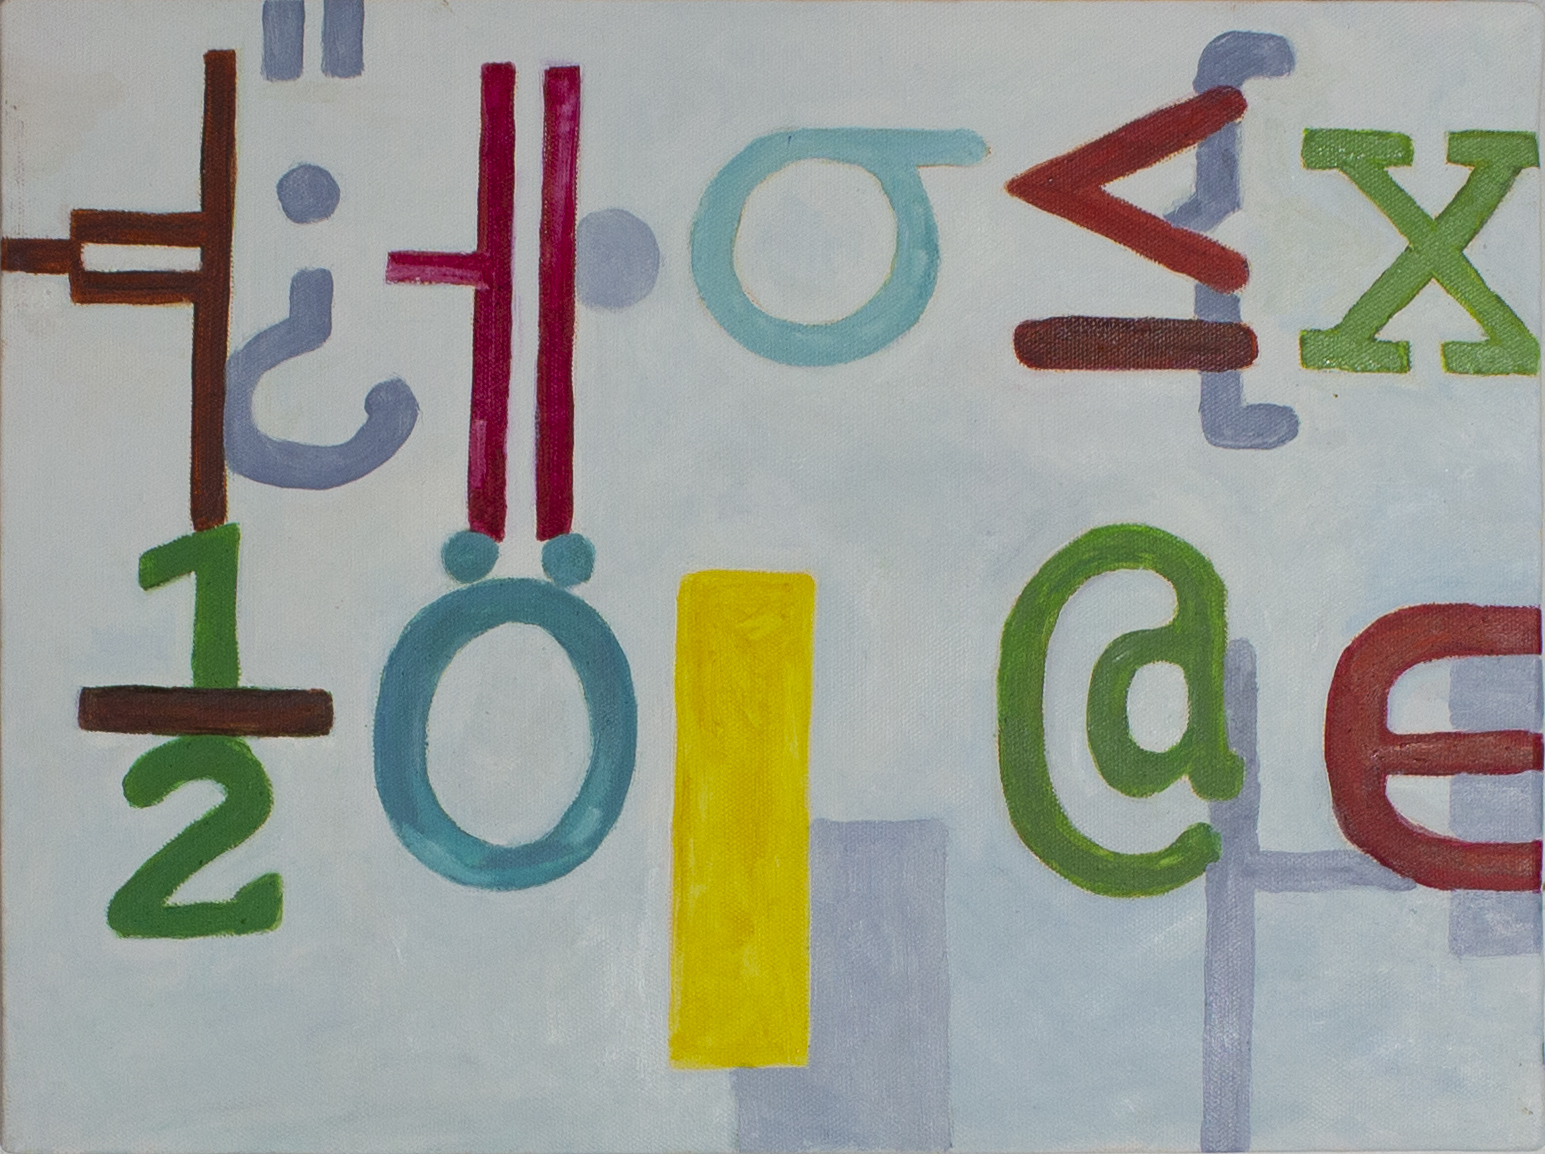 ╡ ¿ ╢ • σ ≤ { x
½ Ö ▌ @ ∈